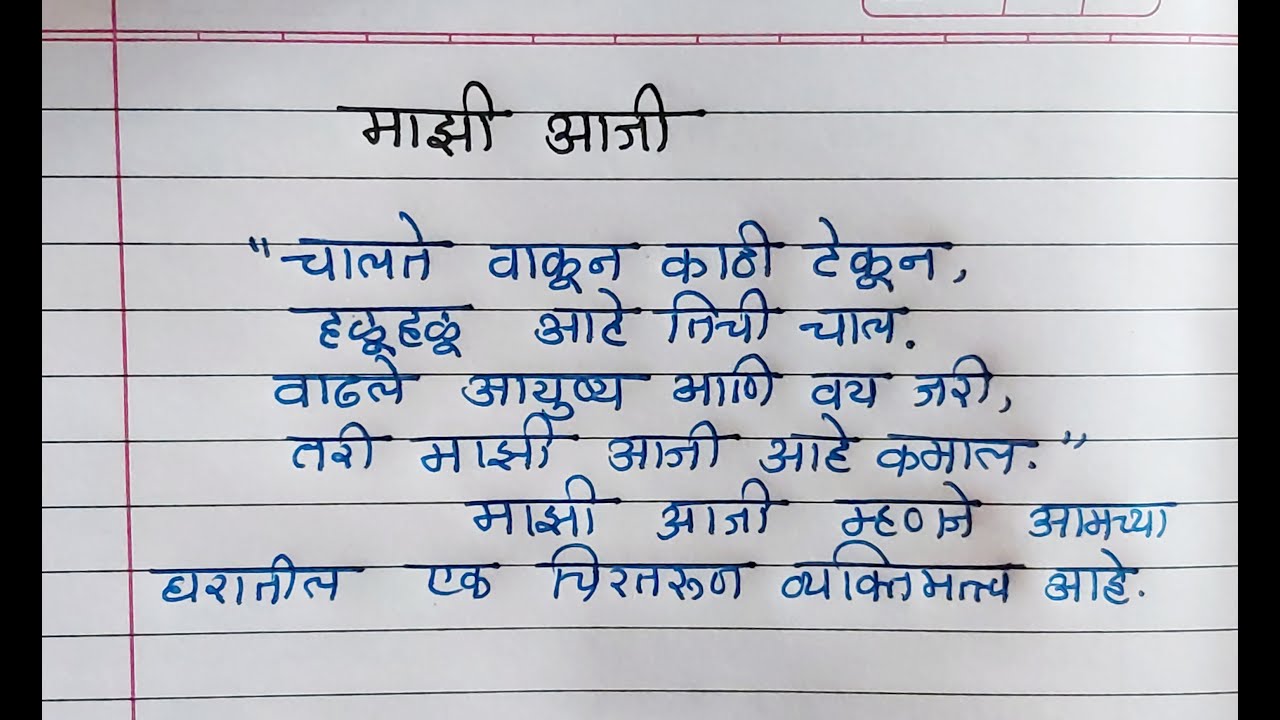 माझी आजी
"चालते वाकून काठी टेकून,
हळूहळू आहे तिची चाल.
वाढले आयुष्य आणि वय जरी,
तरी माझी आजी आहे कमाल."
माझी आजी म्हणजे आमच्या
घरातील एक चिरतरूण व्यक्तिमत्त्व आहे.